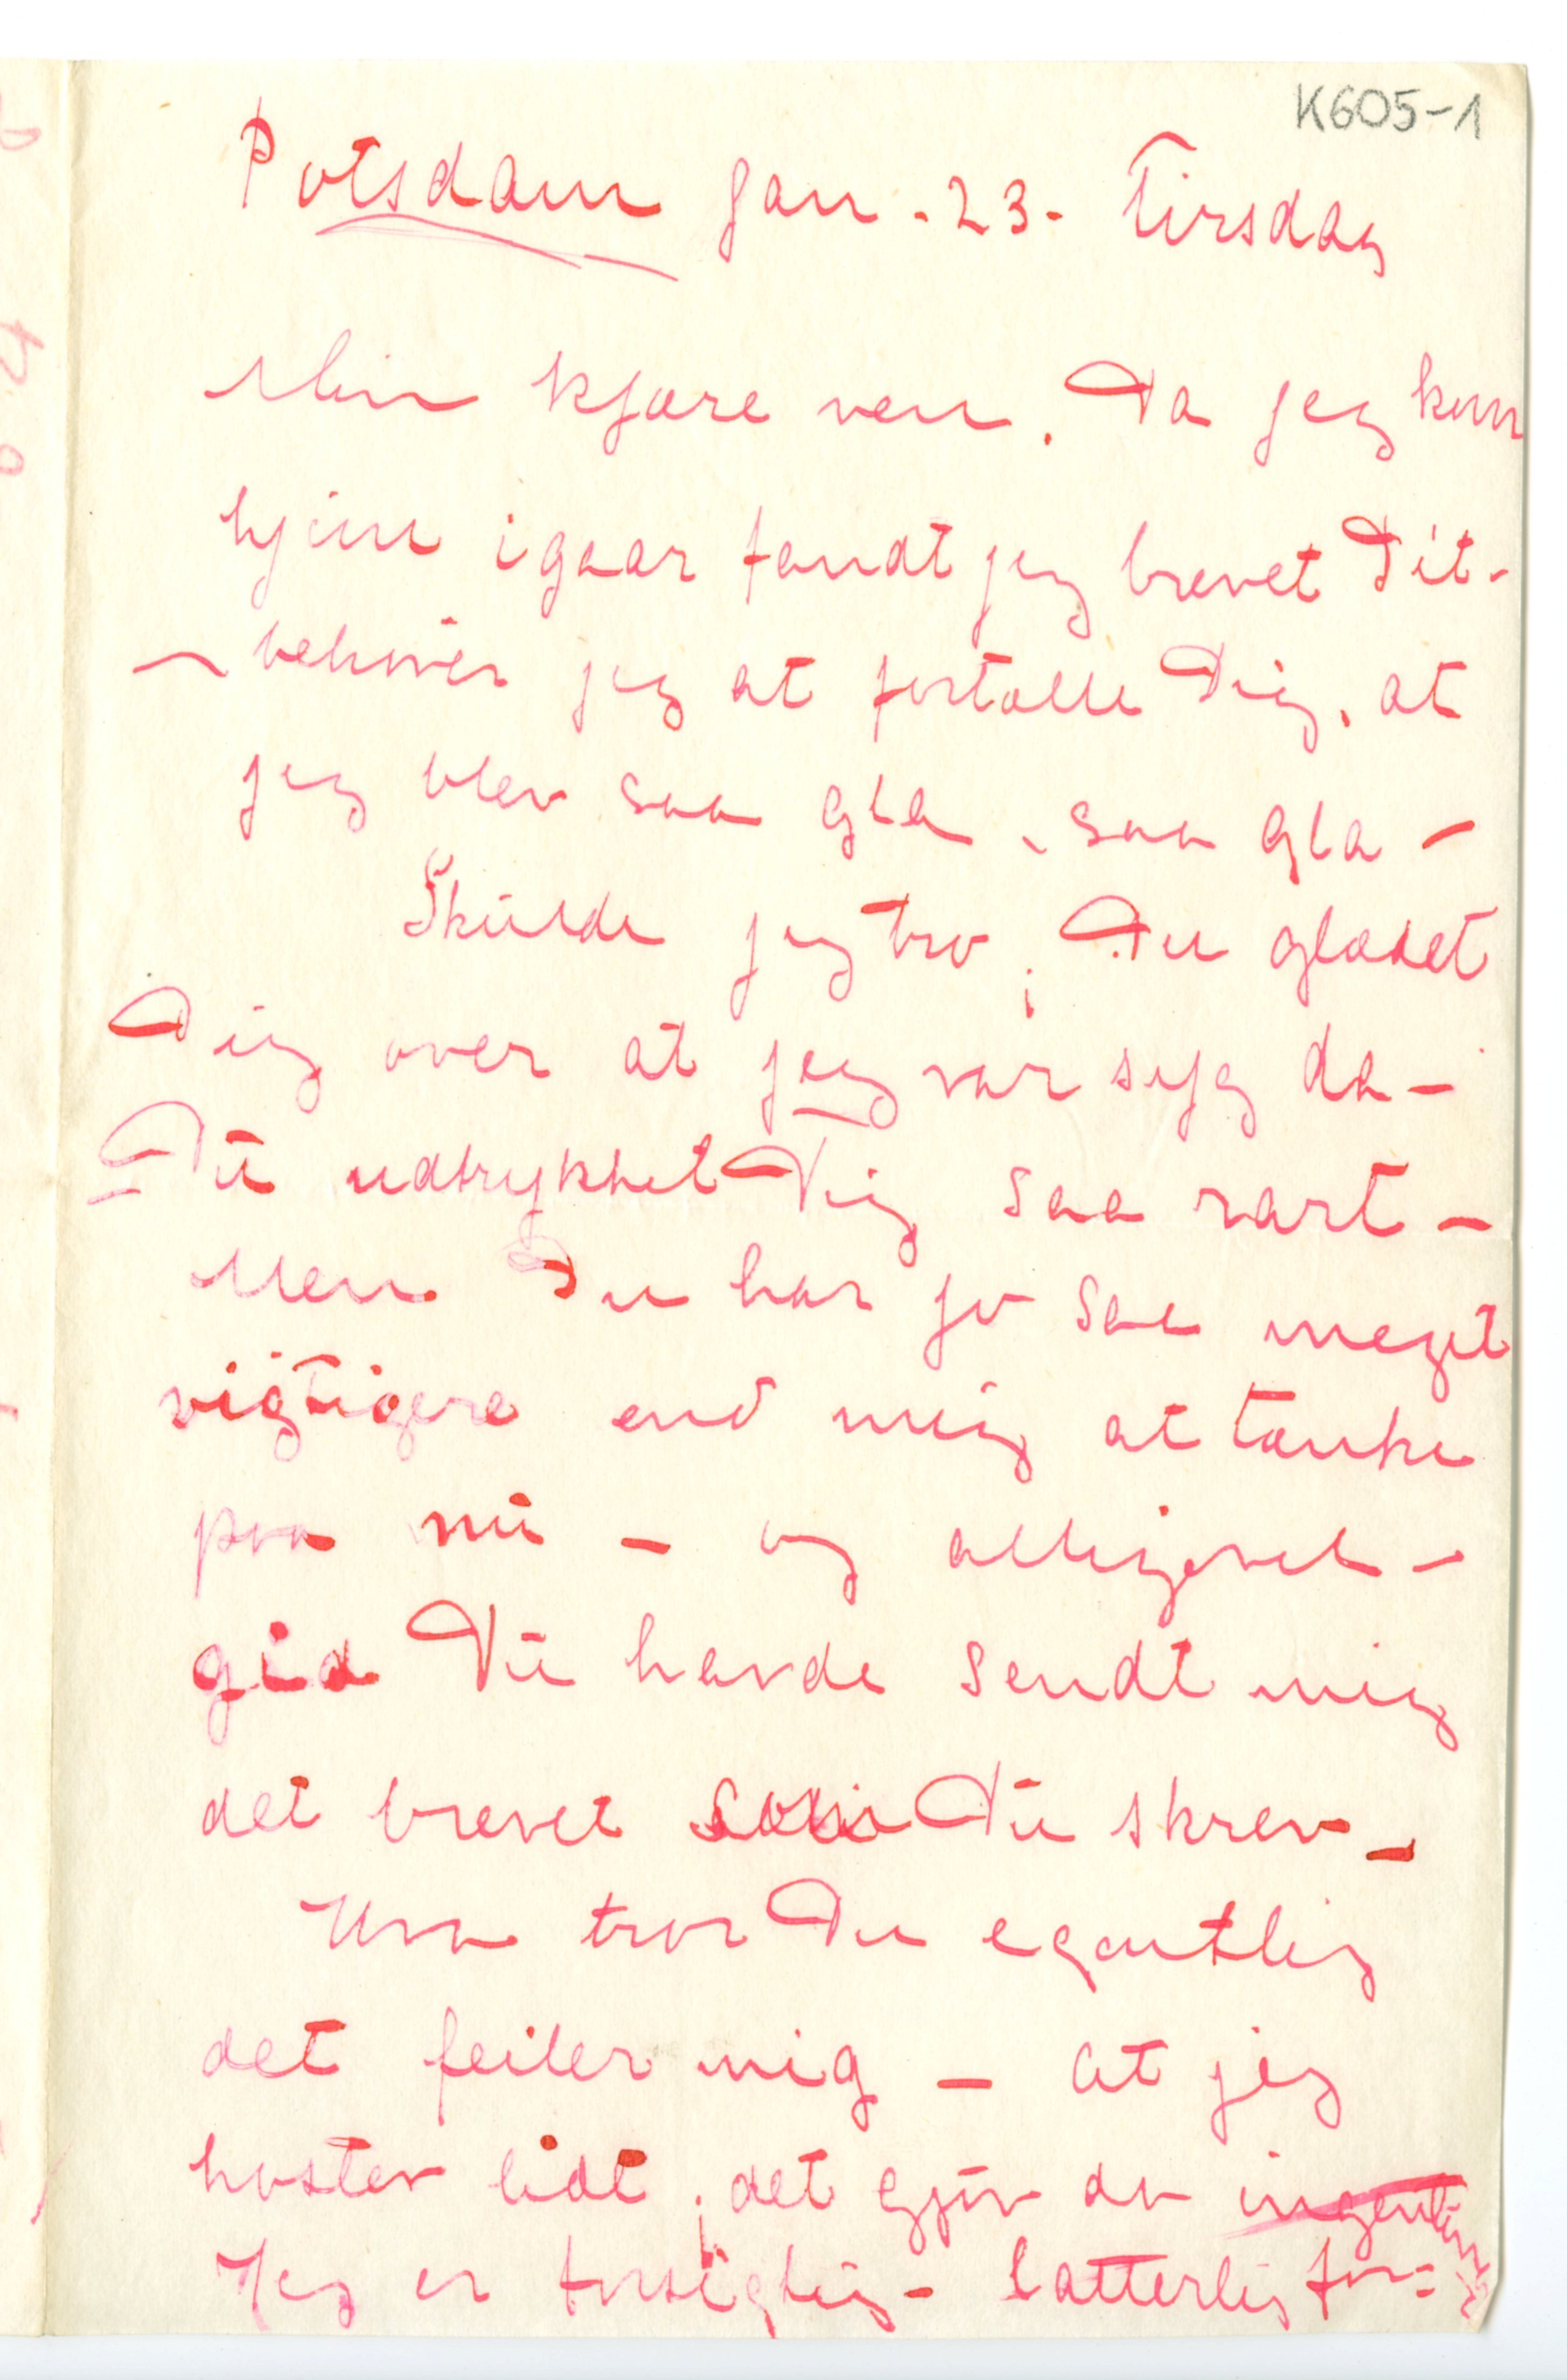 K605-1
Potsdam Jan. 23. Tirsdag
Min kjære ven. Da jeg kom
hjem igaar fandt jeg brevet Dit.
– behøver jeg at fortælle Dig, at
jeg blev saa gla, saa gla –
Skulde jeg tro, Du glædet
Dig over at jeg var syg da –
Du udtrykket Dig saa rart –
Men Du har jo saa meget
vigtigere end mig at tænke
paa nu – og alligevel –
gid Du havde sendt mig
det brevet som Du skrev –
Hva tror Du egentlig
det feiler mig – at jeg
hoster lidt, det gjør da ingenting
Jeg er forsigtig – latterlig for=